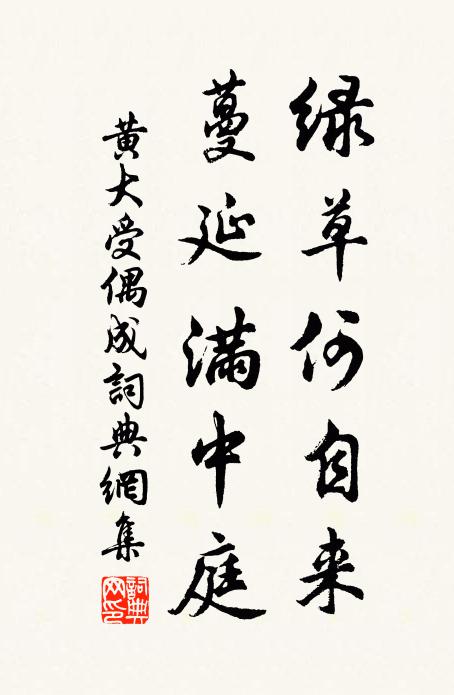 绿草何自来
蔓延满中庭
黄大受偶成詞典網集
詞典网印